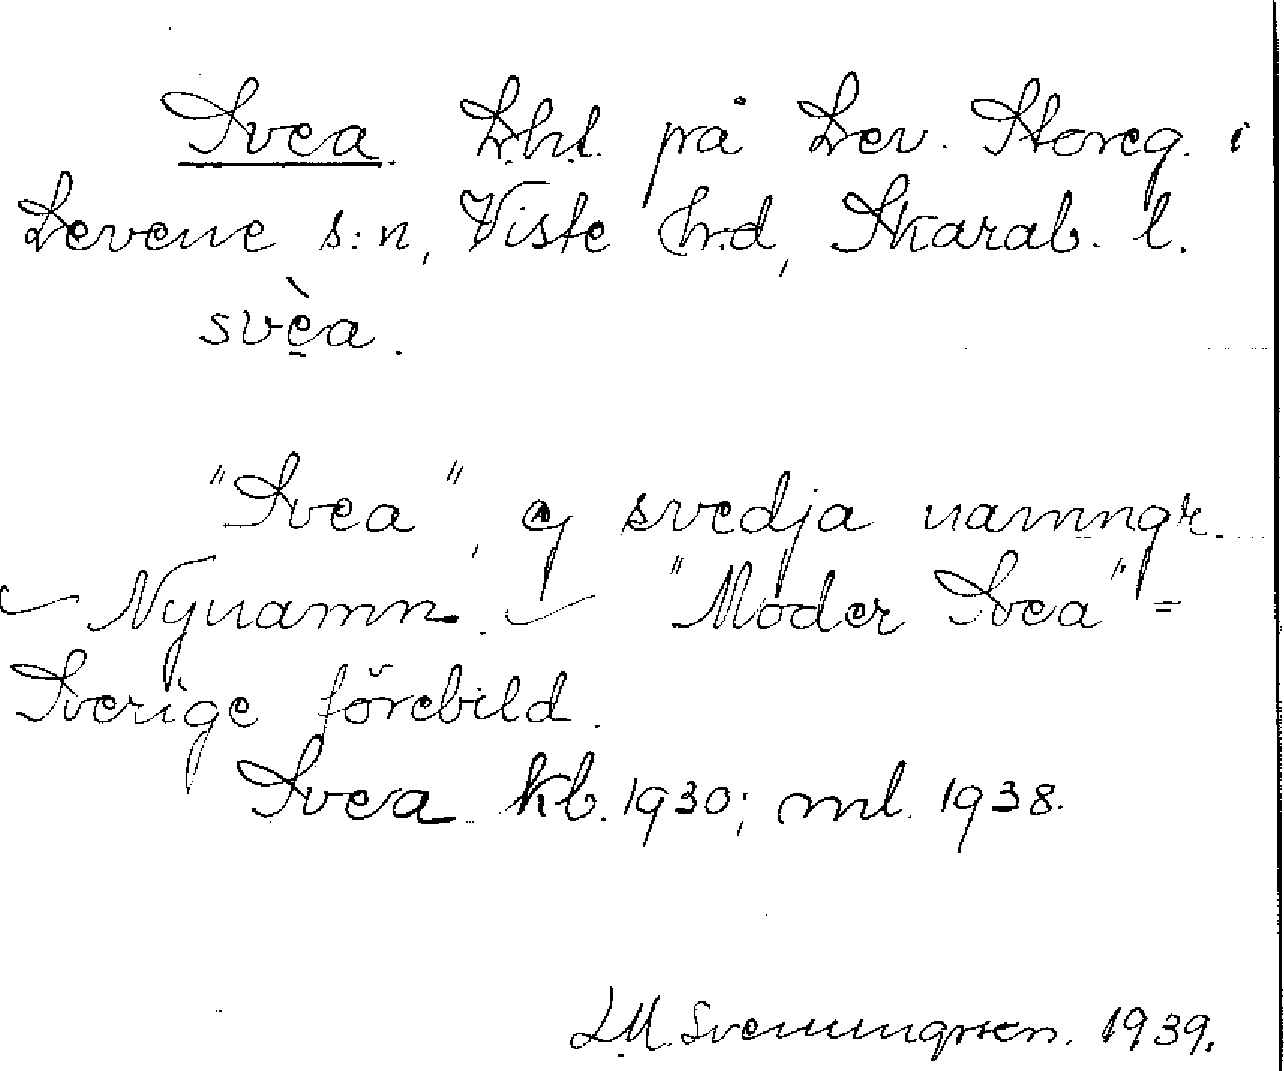 Svea. Lht. på Lev. Storeg. i
Levene s:n, Viste hrd, Skarab. l.
svèa.
"Svea", ej svedja namngr.
- Nynamn. - "Moder Svea" =
Sverige förebild.
Svea kb. 1930; ml. 1938.
LM. Svenungsson. 1939.